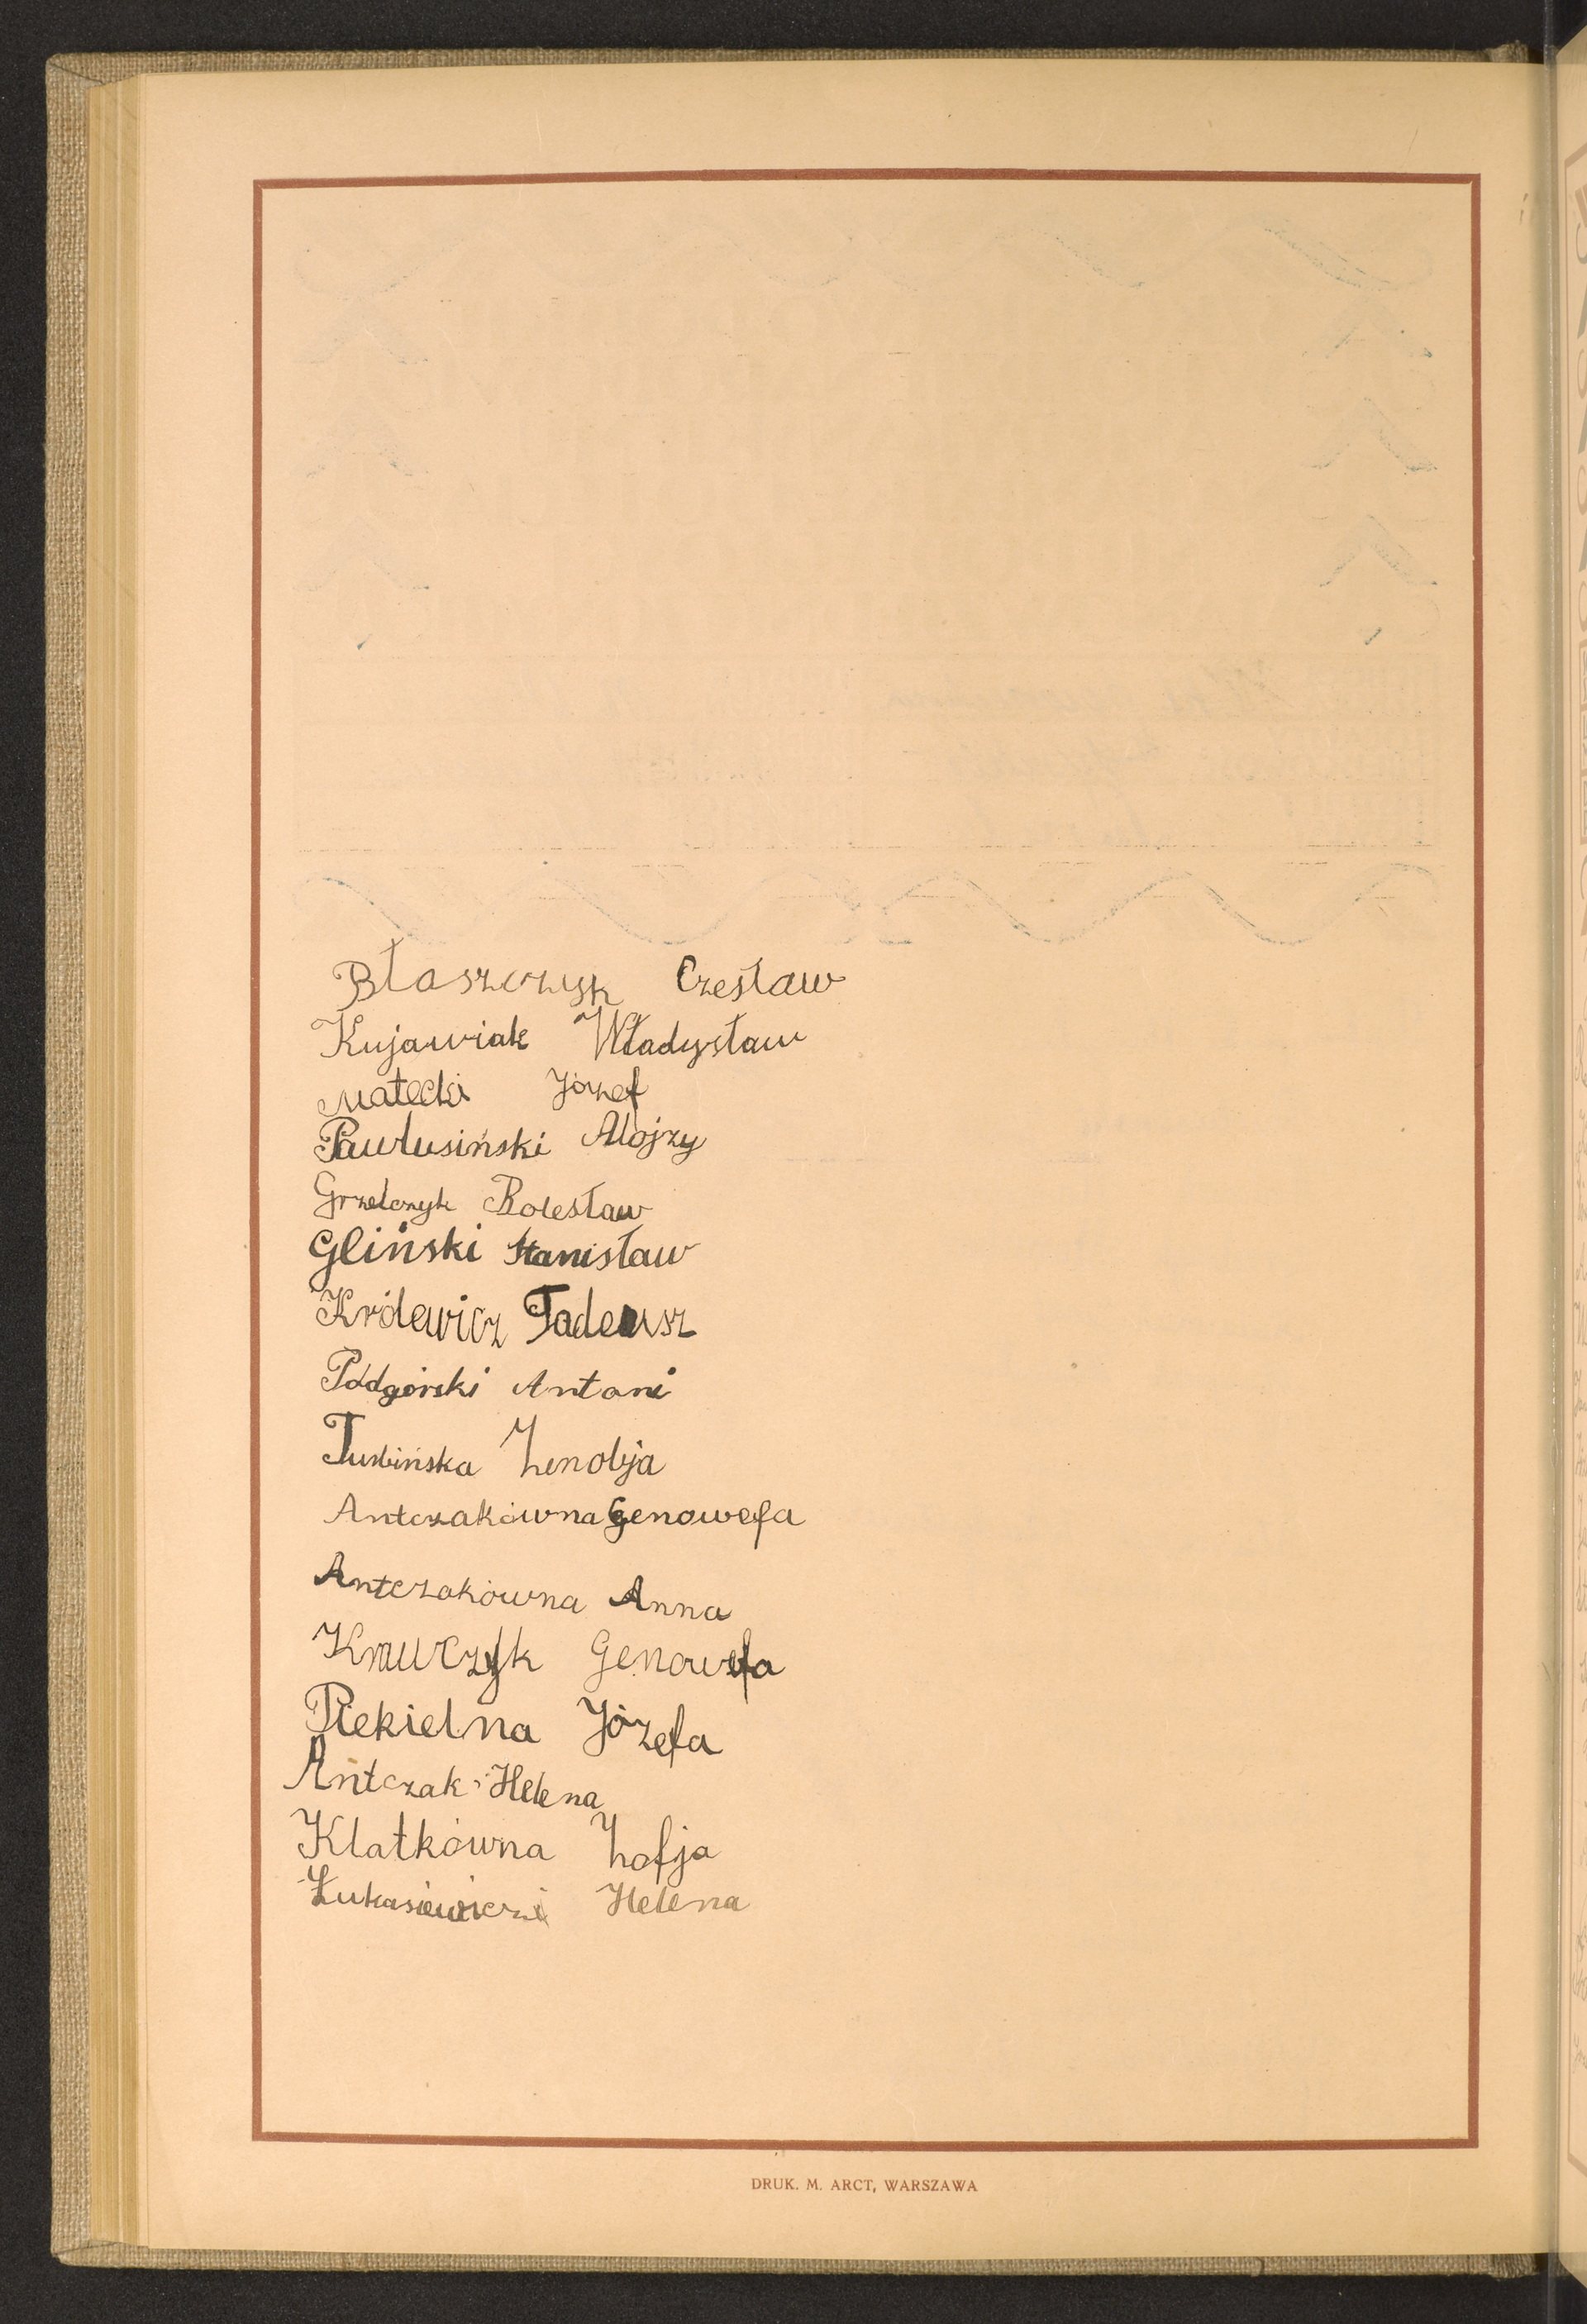 Błaszczyk Czesław
Kujawiak Władysław
Małecki Józef
Pawłusiński Alojzy
Grzelczyk Bolesław
Gliński Stanisław
Królewicz Tadeusz
Pódgórski Antoni
Turbińska Zenobja
Antczakówna Genowefa
Antczakówna Anna
Krawczyk Genowefa
Piekielna Józefa
Antczak Helena
Klatkówna Zofja
Helena
DRUK. M. ARCT, WARSZAWA